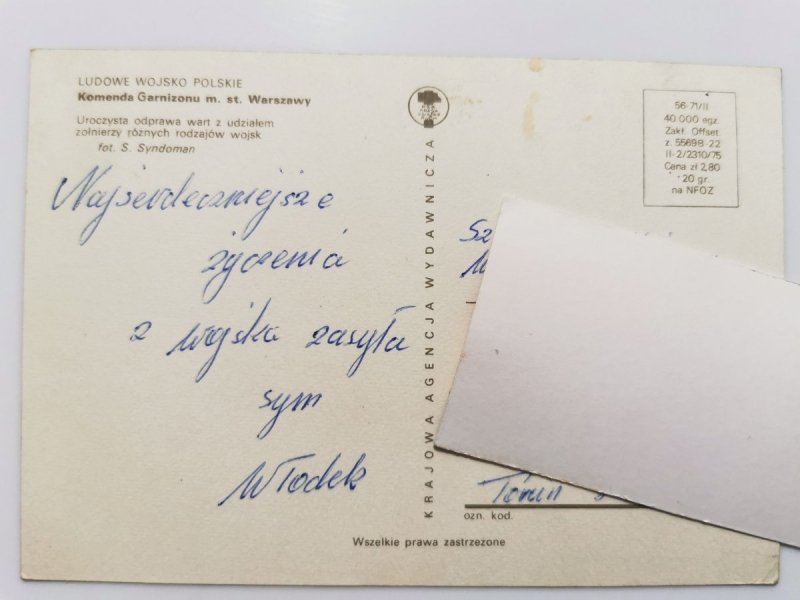 LUDOWE WOJSKO POLSKIE
Komenda Garnizonu m. st. Warszawy
Uroczysta odprawa wart z udziałem
żołnierzy różnych rodzajów wojsk
fot. S. Syndoman
Najserdeczniejsze
życzenia
z wojska zasyła
sym
Włodek
KRAJOWA AGENCJA WYDAWNICZA
56-71/II
40.000 egz.
Zakł. Offset.
z. 55698-22
II-2/2310/75
Cena zł 2,80
+20 gr.
na NFOZ
Sz
Toruń
ozn. kod.
Wszelkie prawa zastrzeżone